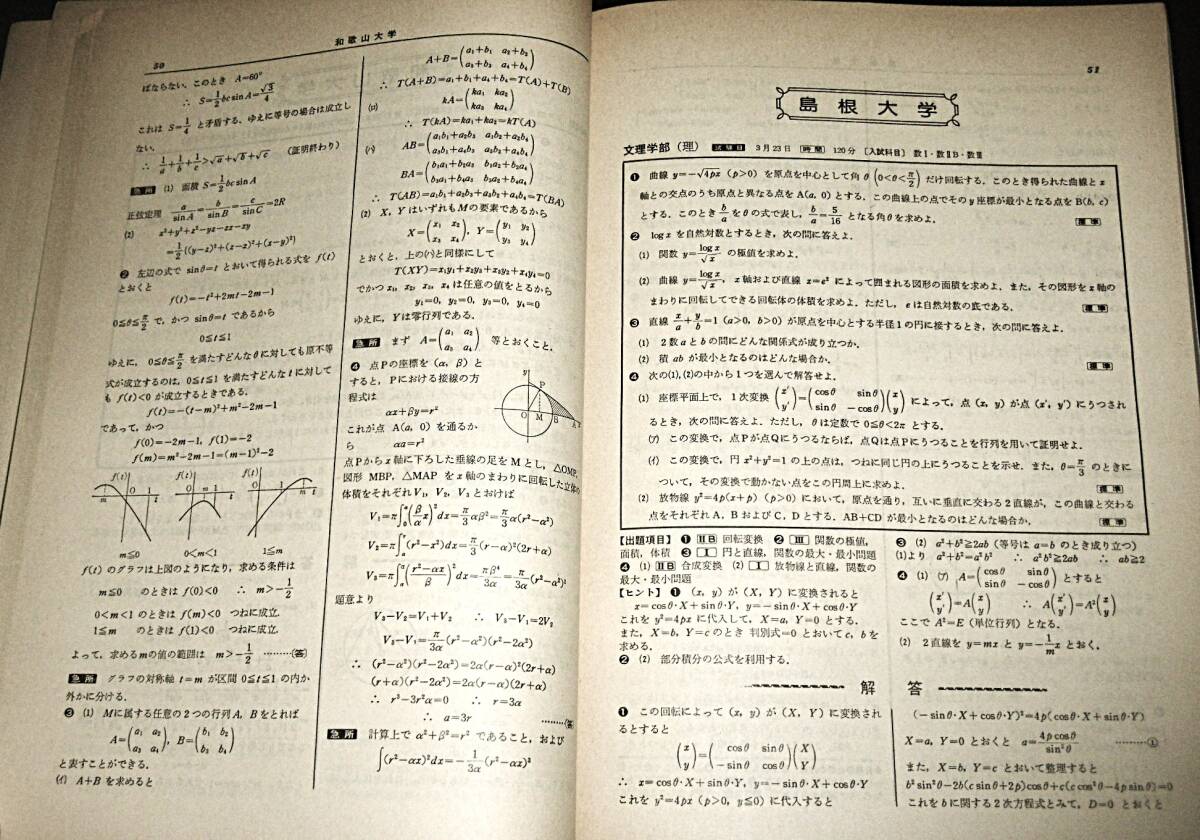 50
和歌山大学
ばならない．このとき A=60°
∴ S=1/2 bc sin A=√3/4
これは S=1/4 と矛盾する．ゆえに等号の場合は成立し
ない．
∴ 1/a+1/b+1/c>√a+√b+√c （証明終わり）
急所 (1) 面積 S=1/2 bc sin A
正弦定理 a/sin A=b/sin B=c/sin C=2R
(2) x²+y²+z²-yz-zx-xy
=1/2{(y-z)²+(z-x)²+(x-y)²}
❷ 左辺の式で sinθ=t とおいて得られる式を f(t)
とおくと
f(t)=-t²+2mt-2m-1
0≦θ≦π/2 で，かつ sinθ=t であるから
0≦t≦1
ゆえに，0≦θ≦π/2 を満たすどんなθに対しても原不等
式が成立するのは，0≦t≦1 を満たすどんな t に対して
も f(t)<0 が成立するときである．
f(t)=-(t-m)²+m²-2m-1
であって，かつ
f(0)=-2m-1, f(1)=-2
f(m)=m²-2m-1=(m-1)²-2
f(t) f(t) f(t)
m O 1 t O m 1 t O 1 m t
m≦0 0<m<1 1≦m
f(t) のグラフは上図のようになり，求める条件は
m≦0 のときは f(0)<0 ∴ m>-1/2
0<m<1 のときは f(m)<0 つねに成立．
1≦m のときは f(1)<0 つねに成立．
よって，求めるmの値の範囲は m>-1/2 ………(答)
急所 グラフの対称軸 t=m が区間 0≦t≦1 の内か
外かに分ける．
❸ (1) Mに属する任意の2つの行列A, Bをとれば
A=(a₁ a₂ / a₃ a₄), B=(b₁ b₂ / b₃ b₄)
と表すことができる．
(イ) A+B を求めると
A+B=(a₁+b₁ a₂+b₂ / a₃+b₃ a₄+b₄)
∴ T(A+B)=a₁+b₁+a₄+b₄=T(A)+T(B)
(ロ) kA=(ka₁ ka₂ / ka₃ ka₄)
∴ T(kA)=ka₁+ka₄=kT(A)
(ハ) AB=(a₁b₁+a₂b₃ a₁b₂+a₂b₄ / a₃b₁+a₄b₃ a₃b₂+a₄b₄)
BA=(b₁a₁+b₂a₃ b₁a₂+b₂a₄ / b₃a₁+b₄a₃ b₃a₂+b₄a₄)
∴ T(AB)=a₁b₁+a₂b₃+a₃b₂+a₄b₄=T(BA)
(2) X, Y はいずれも M の要素であるから
X=(x₁ x₂ / x₃ x₄), Y=(y₁ y₂ / y₃ y₄)
とおくと，上の(ハ)と同様にして
T(XY)=x₁y₁+x₂y₃+x₃y₂+x₄y₄=0
でかつ x₁, x₂, x₃, x₄ は任意の値をとるから
y₁=0, y₂=0, y₃=0, y₄=0
ゆえに，Yは零行列である．
急所 まず A=(a₁ a₂ / a₃ a₄) 等とおくこと．
❹ 点Pの座標を (α, β) と
すると，Pにおける接線の方
程式は
αx+βy=r²
これが点 A(a, 0) を通るか
ら αa=r²
y P O M B A x
点Pからx軸に下ろした垂線の足をMとし，△OMP,
図形 MBP, △MAP を x軸のまわりに回転した立体の
体積をそれぞれ V₁, V₂, V₃ とおけば
V₁=π∫₀^α(β/α x)²dx=π/3 αβ²=π/3 α(r²-α²)
V₂=π∫_α^r(r²-x²)dx=π/3 (r-α)²(2r+α)
V₃=π∫_α^a((r²-αx)/β)²dx=πβ⁴/3α=π/3α (r²-α²)²
題意より
V₃-V₂=V₁+V₂ ∴ V₃-V₁=2V₂
V₃-V₁=π/3α (r²-α²)(r²-2α²)
∴ (r²-α²)(r²-2α²)=2α(r-α)²(2r+α)
(r+α)(r²-2α²)=2α(r-α)(2r+α)
∴ r³-3r²α=0 ∴ r=3α
∴ a=3r ………(答)
急所 計算上で α²+β²=r² であること，および
∫(r²-αx)²dx=-1/3α (r²-αx)³
51
島根大学
文理学部（理） 試験日 3月23日 時間 120分 〔入試科目〕 数Ⅰ・数ⅡB・数Ⅲ
❶ 曲線 y=-√4px (p>0) を原点を中心として角 θ (0<θ<π/2) だけ回転する．このとき得られた曲線と x
軸との交点のうち原点と異なる点を A(a, 0) とする．この曲線上の点でその y座標が最小となる点を B(b, c)
とする．このとき b/a を θ の式で表し，b/a=5/16 となる角 θ を求めよ． 標準
❷ log x を自然対数とするとき，次の問に答えよ．
(1) 関数 y=log x/√x の極値を求めよ．
(2) 曲線 y=log x/√x，x軸および直線 x=e² によって囲まれる図形の面積を求めよ．また，その図形を x軸の
まわりに回転してできる回転体の体積を求めよ．ただし，e は自然対数の底である． 標準
❸ 直線 x/a+y/b=1 (a>0, b>0) が原点を中心とする半径1の円に接するとき，次の問に答えよ．
(1) 2数 a と b の間にどんな関係式が成り立つか．
(2) 積 ab が最小となるのはどんな場合か． 標準
❹ 次の(1), (2)の中から1つを選んで解答せよ．
(1) 座標平面上で，1次変換 (x′ / y′)=(cosθ sinθ / sinθ -cosθ)(x / y) によって，点 (x, y) が点 (x′, y′) にうつされ
るとき，次の問に答えよ．ただし，θ は定数で 0≦θ<2π とする．
(ア) この変換で，点Pが点Qにうつるならば，点Qは点Pにうつることを行列を用いて証明せよ．
(イ) この変換で，円 x²+y²=1 の上の点は，つねに同じ円の上にうつることを示せ．また，θ=π/3 のときに
ついて，その変換で動かない点をこの円周上に求めよ． 標準
(2) 放物線 y²=4p(x+p) (p>0) において，原点を通り，互いに垂直に交わる2直線が，この曲線と交わる
点をそれぞれ A, B および C, D とする．AB+CD が最小となるのはどんな場合か． 標準
【出題項目】 ❶ ⅡB 回転変換 ❷ Ⅲ 関数の極値，
面積，体積 ❸ Ⅰ 円と直線，関数の最大・最小問題
❹ (1) ⅡB 合成変換 (2) Ⅰ 放物線と直線，関数の
最大・最小問題
【ヒント】 ❶ (x, y) が (X, Y) に変換されると
x=cosθ·X+sinθ·Y, y=-sinθ·X+cosθ·Y
これを y²=4px に代入して，X=a, Y=0 とする．
また，X=b, Y=c のとき 判別式=0 とおいて c, b を
求める．
❷ (2) 部分積分の公式を利用する．
❸ (2) a²+b²≧2ab (等号は a=b のとき成り立つ)
(1)より a²+b²=a²b² ∴ a²b²≧2ab ∴ ab≧2
❹ (1) (ア) A=(cosθ sinθ / sinθ -cosθ) とすると
(x′ / y′)=A(x / y) ∴ A(x′ / y′)=A²(x / y)
ここで A²=E (単位行列) となる．
(2) 2直線を y=mx と y=-1/m x とおく．
解答
❶ この回転によって (x, y) が (X, Y) に変換され
るとすると
(x / y)=(cosθ sinθ / -sinθ cosθ)(X / Y)
∴ x=cosθ·X+sinθ·Y, y=-sinθ·X+cosθ·Y
これを y²=4px (p>0, y≦0) に代入すると
(-sinθ·X+cosθ·Y)²=4p(cosθ·X+sinθ·Y)
X=a, Y=0 とおくと a=4p cosθ/sin²θ ………①
また，X=b, Y=c とおいて整理すると
b²sin²θ-2b(c sinθ+2p)cosθ+c(c cos²θ-4p sinθ)=0
これを b に関する2次方程式とみて，D=0 とおくと